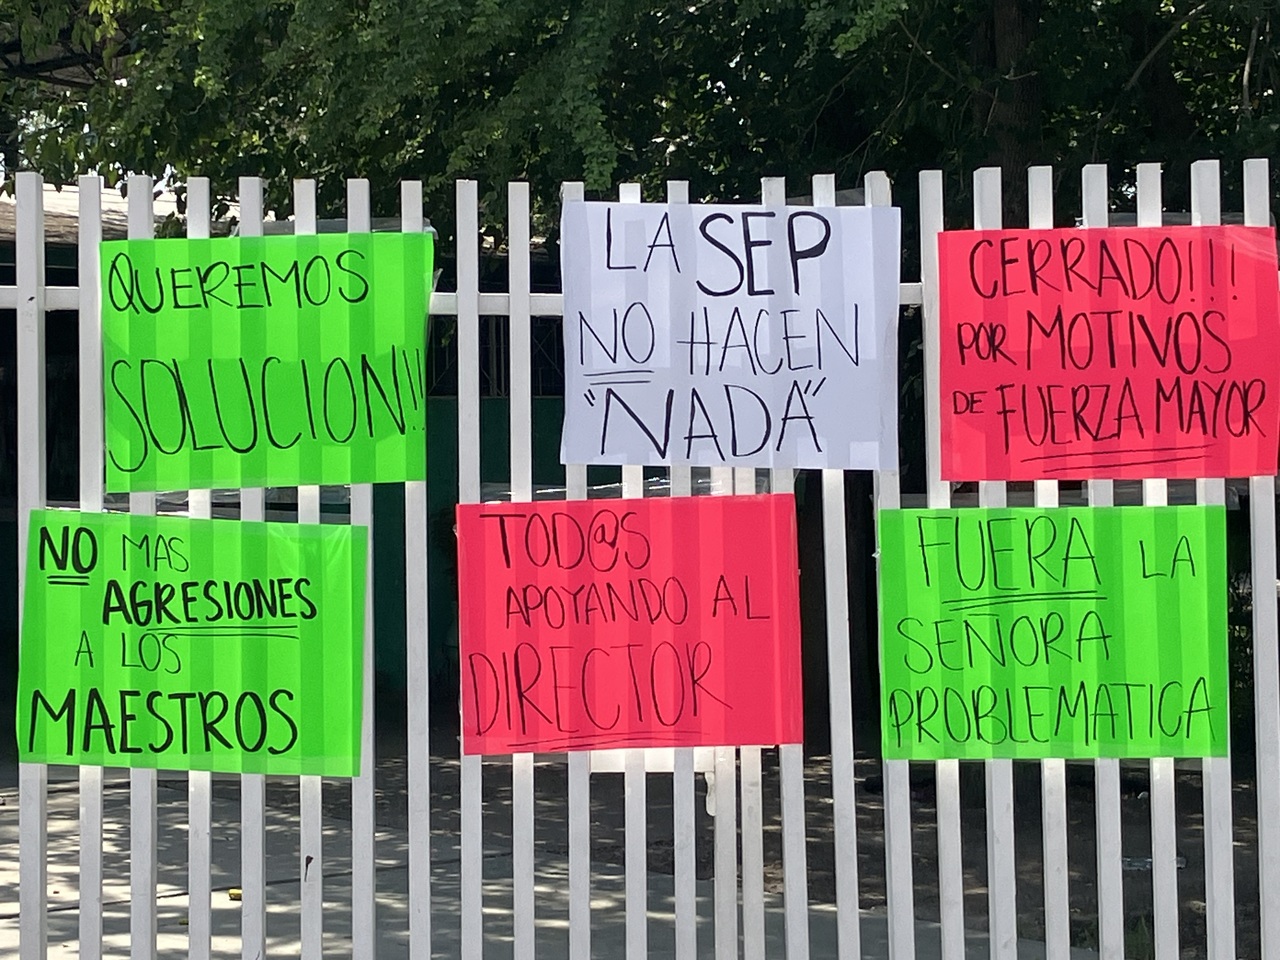 QUEREMOS
SOLUCION!!
LA SEP
NO HACEN
"NADA"
CERRADO!!!
POR MOTIVOS
DE FUERZA MAYOR
NO MAS
AGRESIONES
A LOS
MAESTROS
TOD@S
APOYANDO AL
DIRECTOR
FUERA LA
SEÑORA
PROBLEMATICA